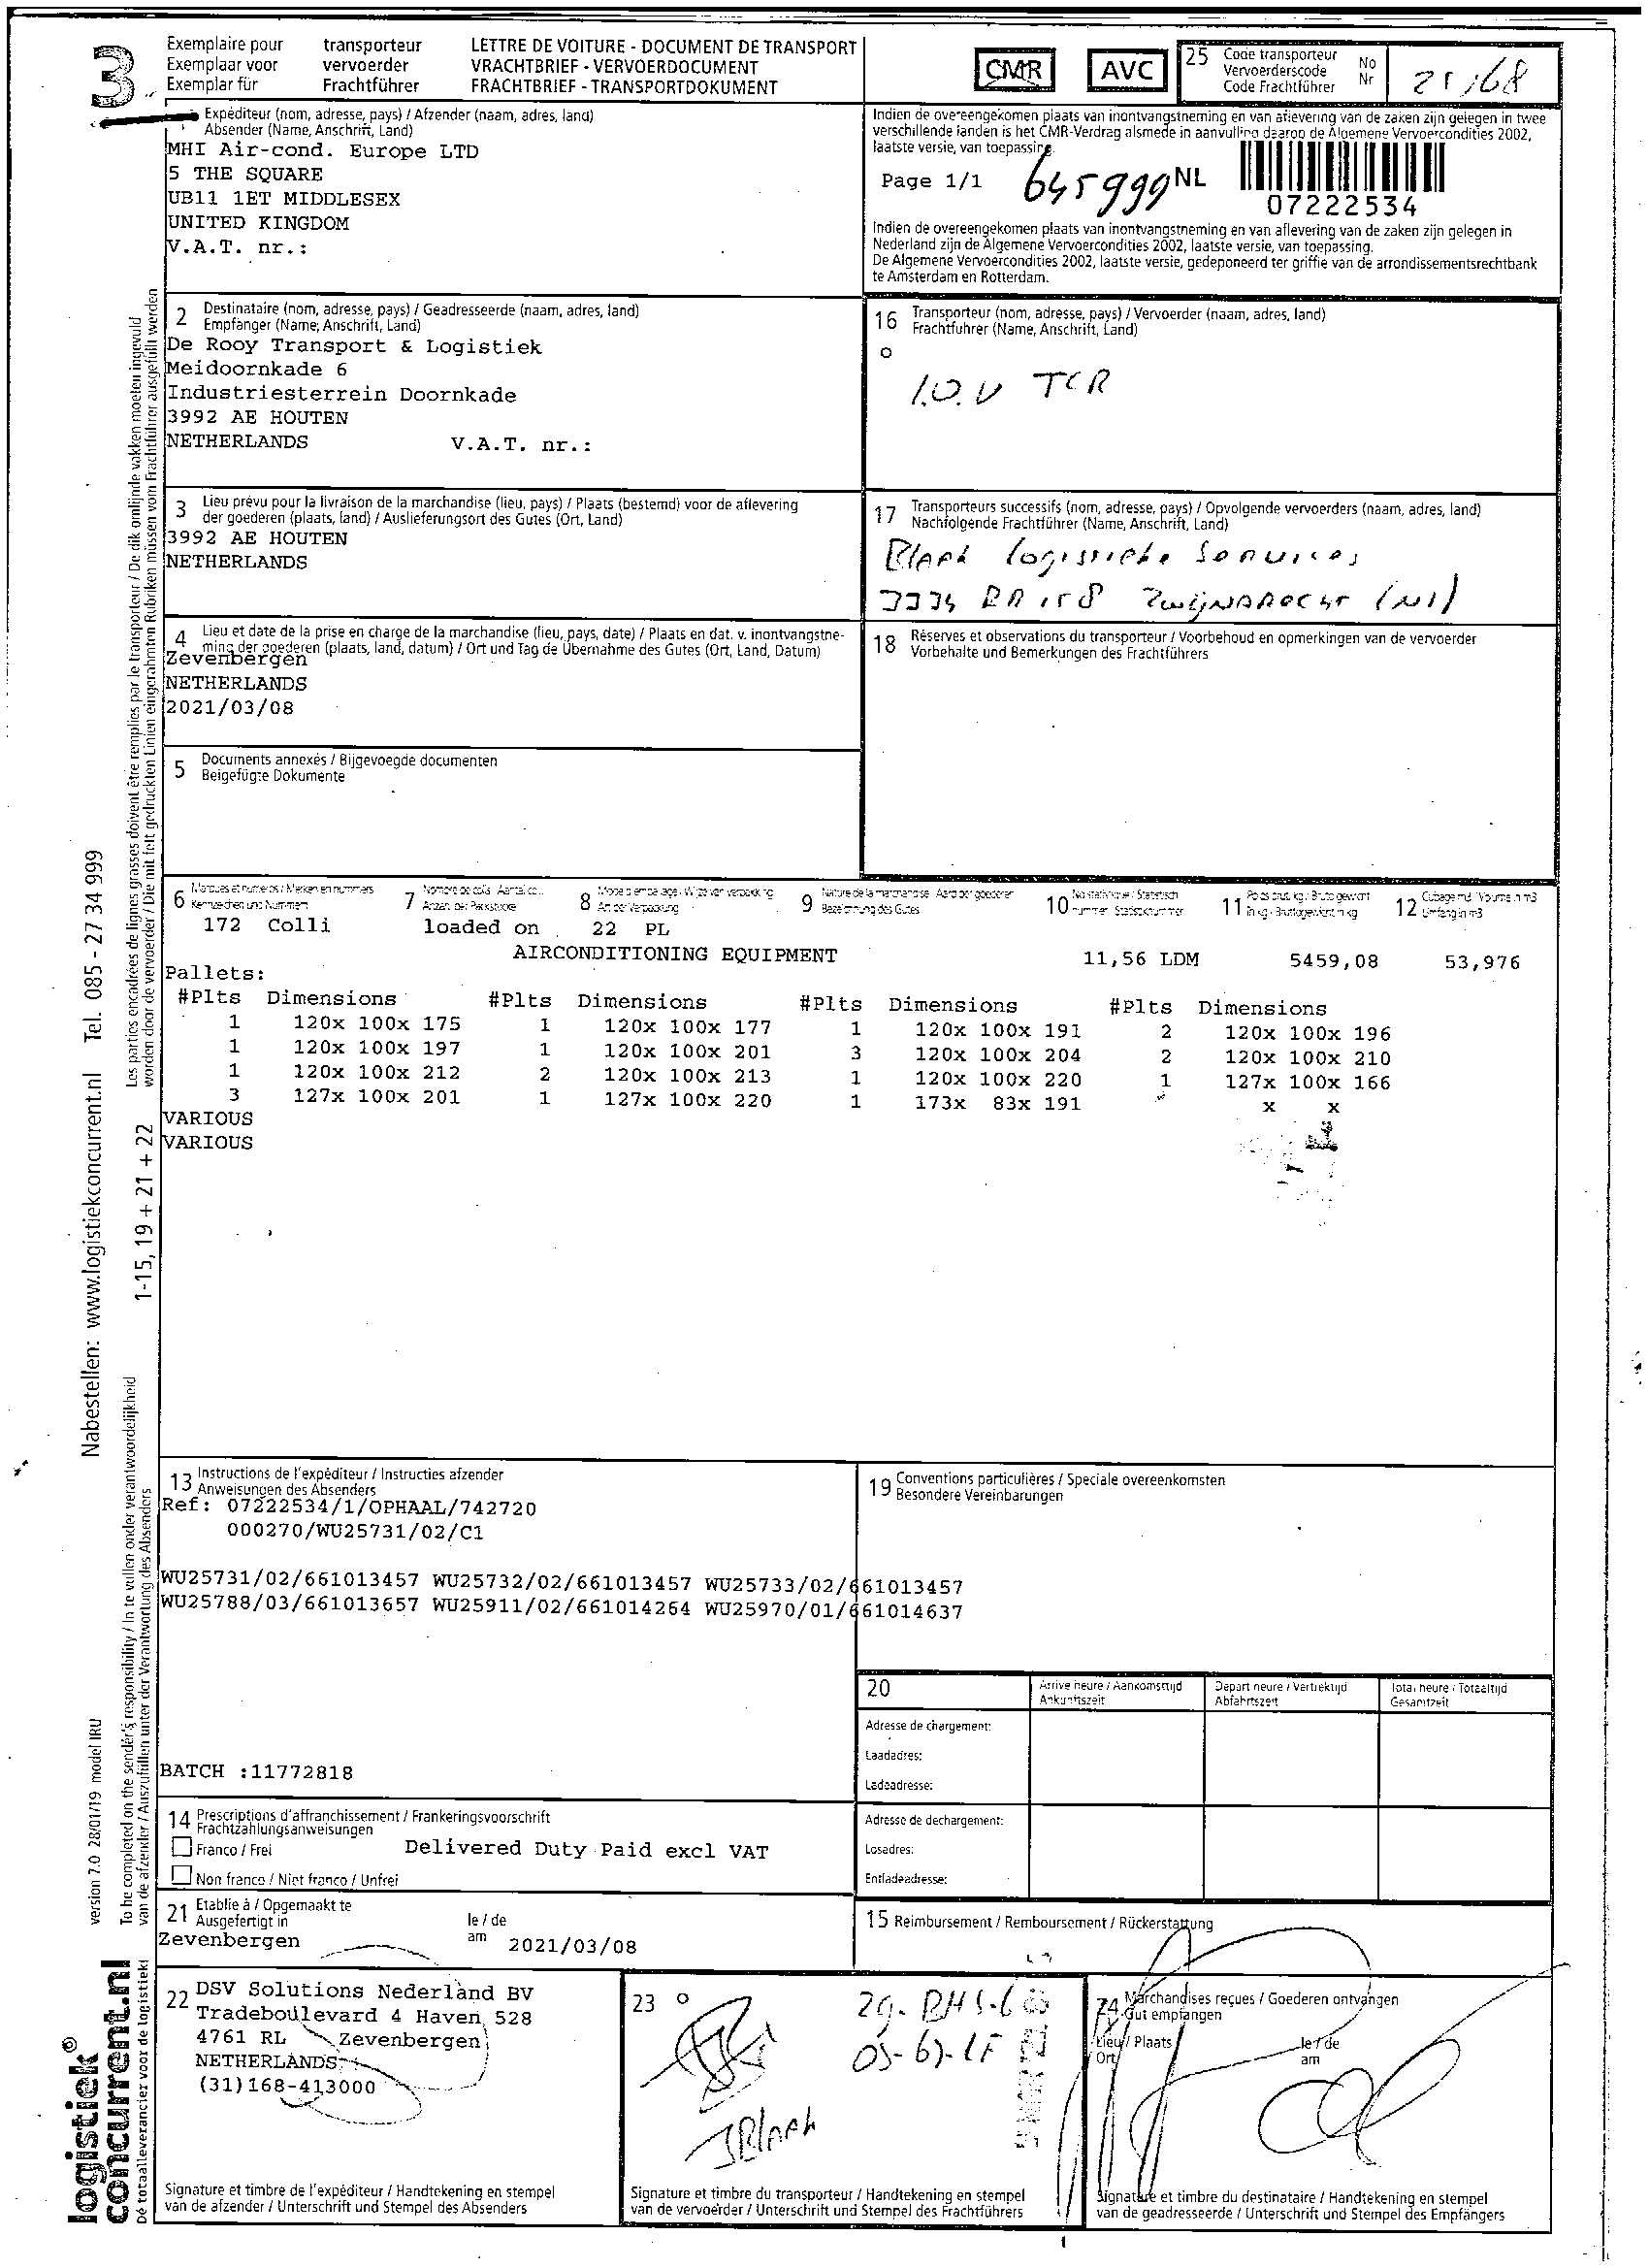 3
Exemplaire pour transporteur
Exemplaar voor vervoerder
Exemplar für Frachtführer
LETTRE DE VOITURE - DOCUMENT DE TRANSPORT
VRACHTBRIEF - VERVOERDOCUMENT
FRACHTBRIEF - TRANSPORTDOKUMENT
CMR
AVC
25 Code transporteur No
Vervoerderscode Nr
Code Frachtführer
Expéditeur (nom, adresse, pays) / Afzender (naam, adres, land)
Absender (Name, Anschrift, Land)
MHI Air-cond. Europe LTD
5 THE SQUARE
UB11 1ET MIDDLESEX
UNITED KINGDOM
V.A.T. nr.:
Indien de overeengekomen plaats van inontvangstneming en van aflevering van de zaken zijn gelegen in twee
verschillende landen is het CMR-Verdrag alsmede in aanvulling daarop de Algemene Vervoercondities 2002,
laatste versie, van toepassing.
Page 1/1 645999 NL
07222534
Indien de overeengekomen plaats van inontvangstneming en van aflevering van de zaken zijn gelegen in
Nederland zijn de Algemene Vervoercondities 2002, laatste versie, van toepassing.
De Algemene Vervoercondities 2002, laatste versie, gedeponeerd ter griffie van de arrondissementsrechtbank
te Amsterdam en Rotterdam.
2 Destinataire (nom, adresse, pays) / Geadresseerde (naam, adres, land)
Empfänger (Name, Anschrift, Land)
De Rooy Transport & Logistiek
Meidoornkade 6
Industriesterrein Doornkade
3992 AE HOUTEN
NETHERLANDS V.A.T. nr.:
16 Transporteur (nom, adresse, pays) / Vervoerder (naam, adres, land)
Frachtfuhrer (Name, Anschrift, Land)
I.O.V TCR
3 Lieu prévu pour la livraison de la marchandise (lieu, pays) / Plaats (bestemd) voor de aflevering
der goederen (plaats, land) / Auslieferungsort des Gutes (Ort, Land)
3992 AE HOUTEN
NETHERLANDS
17 Transporteurs successifs (nom, adresse, pays) / Opvolgende vervoerders (naam, adres, land)
Nachfolgende Frachtführer (Name, Anschrift, Land)
4 Lieu et date de la prise en charge de la marchandise (lieu, pays, date) / Plaats en dat. v. inontvangstne-
ming der goederen (plaats, land, datum) / Ort und Tag de Übernahme des Gutes (Ort, Land, Datum)
Zevenbergen
NETHERLANDS
2021/03/08
18 Réserves et observations du transporteur / Voorbehoud en opmerkingen van de vervoerder
Vorbehalte und Bemerkungen des Frachtführers
5 Documents annexés / Bijgevoegde documenten
Beigefügte Dokumente
6 Marques et numéros / Merken en nummers
7
8
9
10
11
12
172 Colli loaded on 22 PL
AIRCONDITIONING EQUIPMENT 11,56 LDM 5459,08 53,976
Pallets:
#Plts Dimensions #Plts Dimensions #Plts Dimensions #Plts Dimensions
1 120x 100x 175 1 120x 100x 177 1 120x 100x 191 2 120x 100x 196
1 120x 100x 197 1 120x 100x 201 3 120x 100x 204 2 120x 100x 210
1 120x 100x 212 2 120x 100x 213 1 120x 100x 220 1 127x 100x 166
3 127x 100x 201 1 127x 100x 220 1 173x 83x 191 x x
VARIOUS
VARIOUS
13 Instructions de l'expéditeur / Instructies afzender
Anweisungen des Absenders
Ref: 07222534/1/OPHAAL/742720
000270/WU25731/02/C1
WU25731/02/661013457 WU25732/02/661013457 WU25733/02/661013457
WU25788/03/661013657 WU25911/02/661014264 WU25970/01/661014637
BATCH :11772818
19 Conventions particulières / Speciale overeenkomsten
Besondere Vereinbarungen
20 Arrive heure / Aankomsttijd Ankunftszeit
Depart heure / Vertrektijd Abfahrtszeit
Total heure / Totaaltijd Gesamtzeit
Adresse de chargement:
Laadadres:
Ladeadresse:
Adresse de dechargement:
Losadres:
Entladeadresse:
14 Prescriptions d'affranchissement / Frankeringsvoorschrift
Frachtzahlungsanweisungen
Franco / Frei Delivered Duty Paid excl VAT
Non franco / Niet franco / Unfrei
21 Etablie à / Opgemaakt te le / de
Ausgefertigt in am
Zevenbergen 2021/03/08
15 Reimbursement / Remboursement / Rückerstattung
22 DSV Solutions Nederland BV
Tradeboulevard 4 Haven 528
4761 RL Zevenbergen
NETHERLANDS
(31)168-413000
Signature et timbre de l'expéditeur / Handtekening en stempel
van de afzender / Unterschrift und Stempel des Absenders
23
Signature et timbre du transporteur / Handtekening en stempel
van de vervoerder / Unterschrift und Stempel des Frachtführers
24 Marchandises reçues / Goederen ontvangen
Gut empfangen
Lieu / Plaats le / de
Ort am
Signature et timbre du destinataire / Handtekening en stempel
van de geadresseerde / Unterschrift und Stempel des Empfängers
Les parties encadrées de lignes grasses doivent être remplies par le transporteur / De dik omlijnde vakken moeten ingevuld
worden door de vervoerder / Die mit fett gedruckten Linien eingerahmten Rubriken müssen vom Frachtführer ausgefüllt werden
Nabestellen: www.logistiekconcurrent.nl Tel. 085 - 27 34 999
1-15, 19 + 21 + 22
To be completed on the sender's responsibility / In te vullen onder verantwoordelijkheid
van de afzender / Auszufüllen unter der Verantwortung des Absenders
version 7.0 28/01/19 model IRU
logistiek
concurrent.nl
Dé totaalleverancier voor de logistiek!